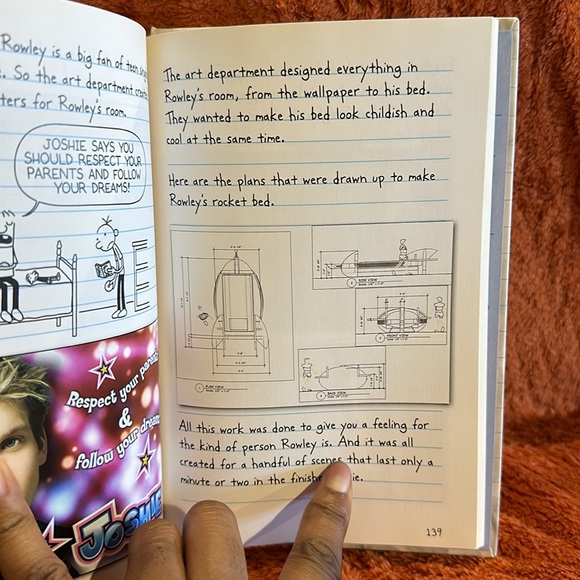 Rowley is a big fan of teen
So the art department
for Rowley's room.
JOSHIE SAYS YOU
SHOULD RESPECT YOUR
PARENTS AND FOLLOW
YOUR DREAMS!
Respect your parents
&
follow your dreams
JOSHIE
The art department designed everything in
Rowley's room, from the wallpaper to his bed.
They wanted to make his bed look childish and
cool at the same time.
Here are the plans that were drawn up to make
Rowley's rocket bed.
PLAN VIEW
SIDE VIEW
FRONT VIEW
BACK VIEW
All this work was done to give you a feeling for
the kind of person Rowley is. And it was all
created for a handful of scenes that last only a
minute or two in the
139